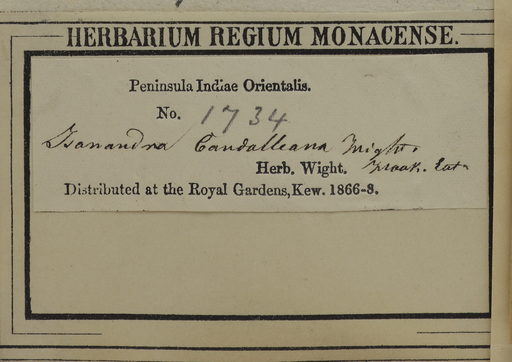 HERBARIUM REGIUM MONACENSE.
Peninsula Indiae Orientalis.
No. 1734
Isonandra Candolleana Wight.
Herb. Wight.
Distributed at the Royal Gardens, Kew. 1866-8.